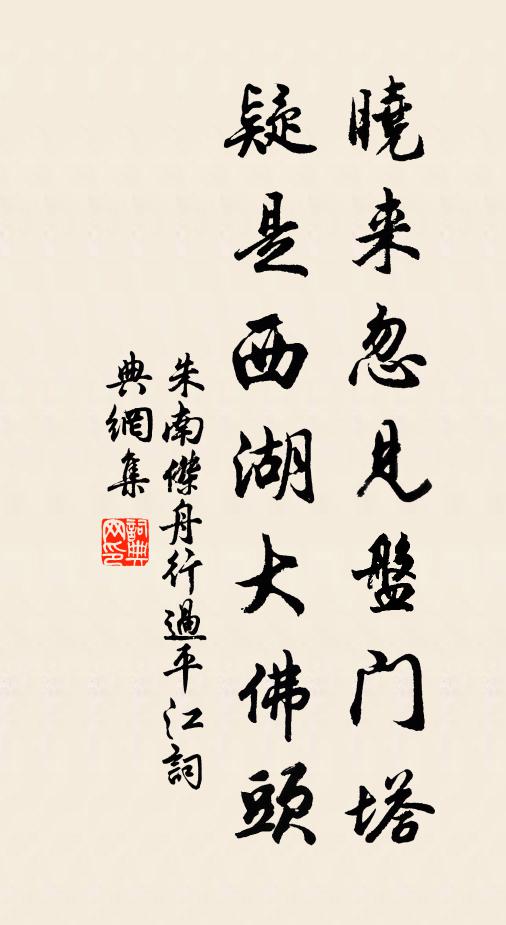 曉来忽見盤门塔
疑是西湖大佛頭
朱南傑舟行過平江詞
典網集
詞典网印